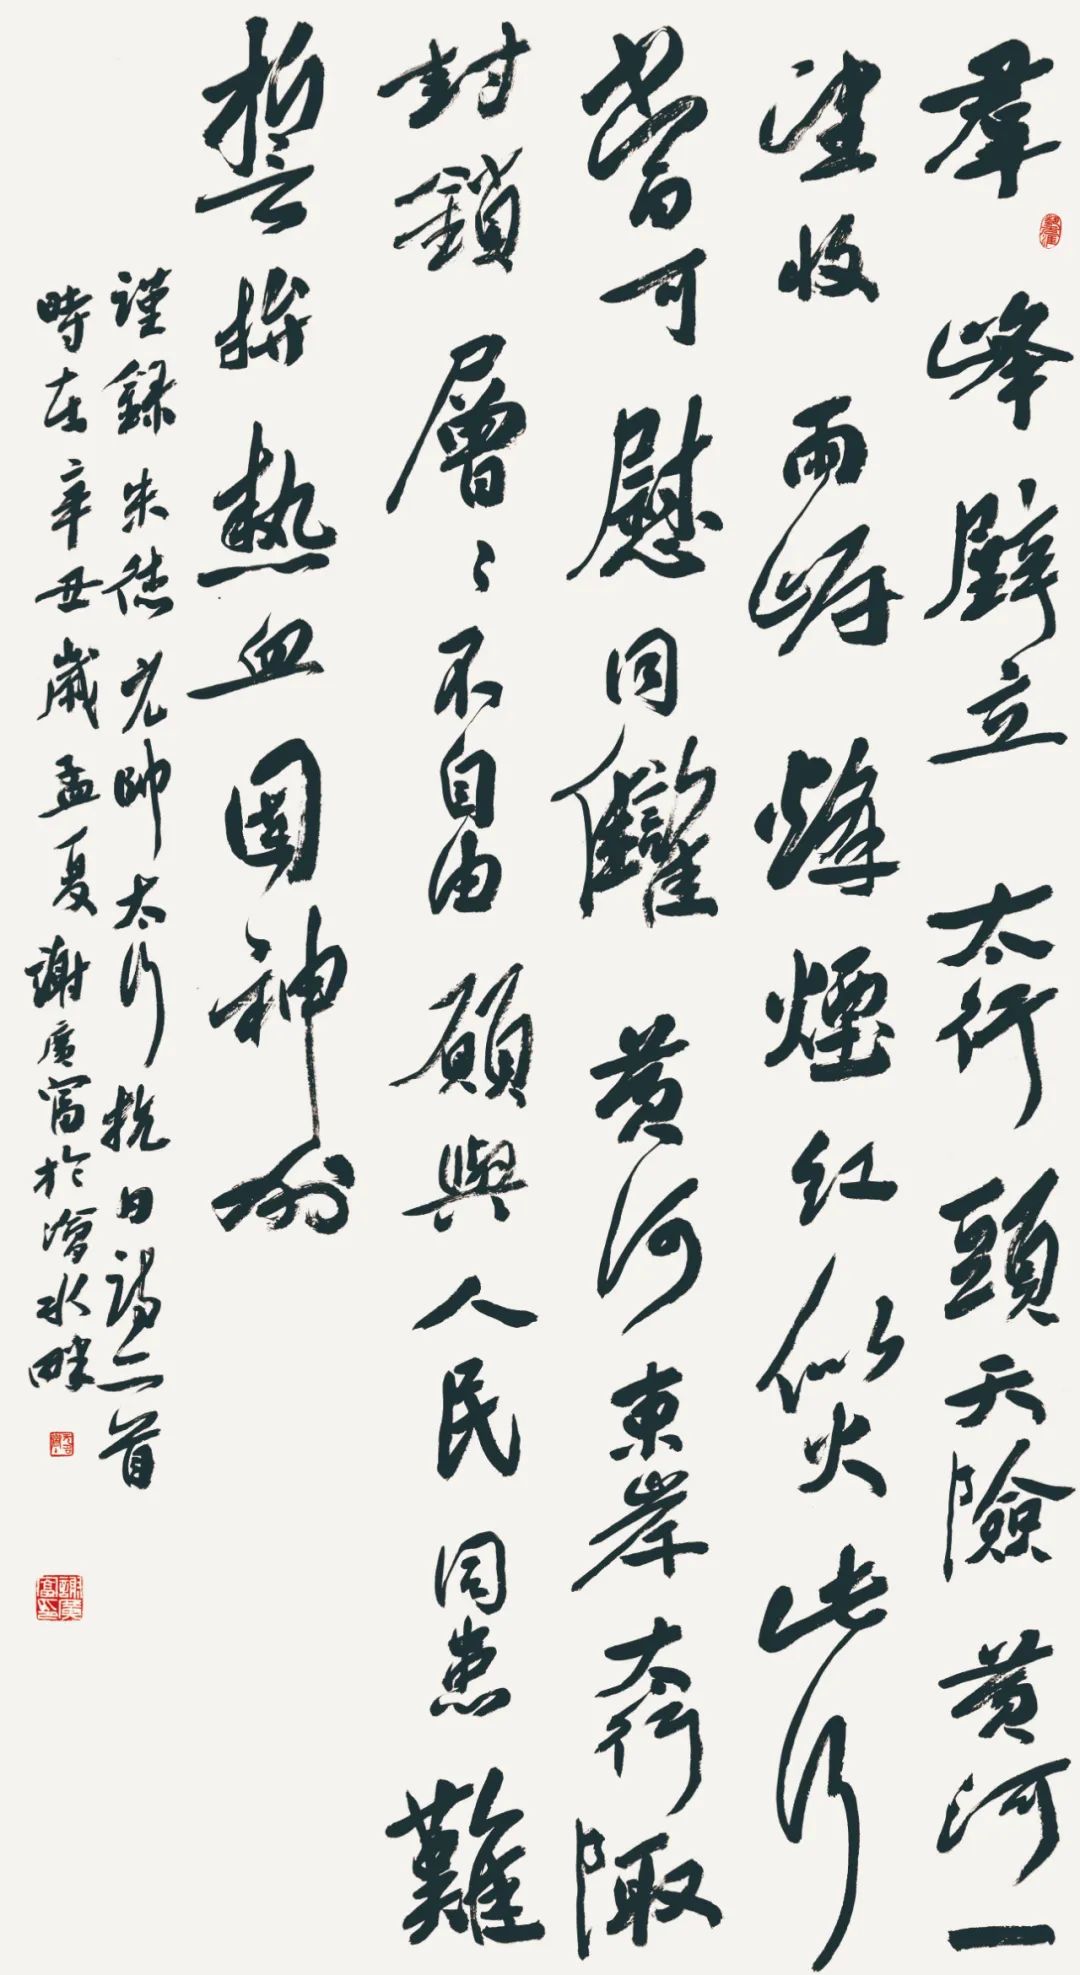 羣峰壁立太行頭天險黄河一
望收兩岸烽煙红似火此行
當可慰同讎黄河東岸太行陬
封鎖層〻不自由願與人民同患難
誓拚熱血固神州
謹録朱德元帥太行抗日詩二首
時在辛丑歲孟夏謝廣富於澮水畔
謝廣富印